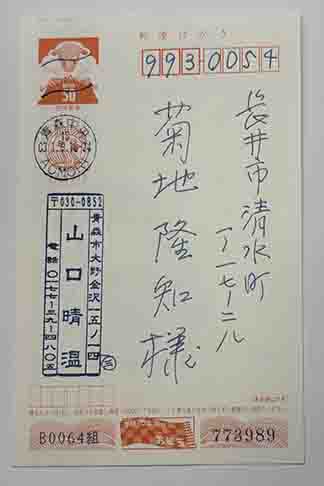 郵便はがき
50
993-0054
長井市清水町
一丁一七ー二八
菊地隆知様
青森中央
AOMORI
〒030-0852
青森市大野金沢一五ノ一四
山口晴温
電話〇一七七ー三九ー四八〇五
B0064組
773989